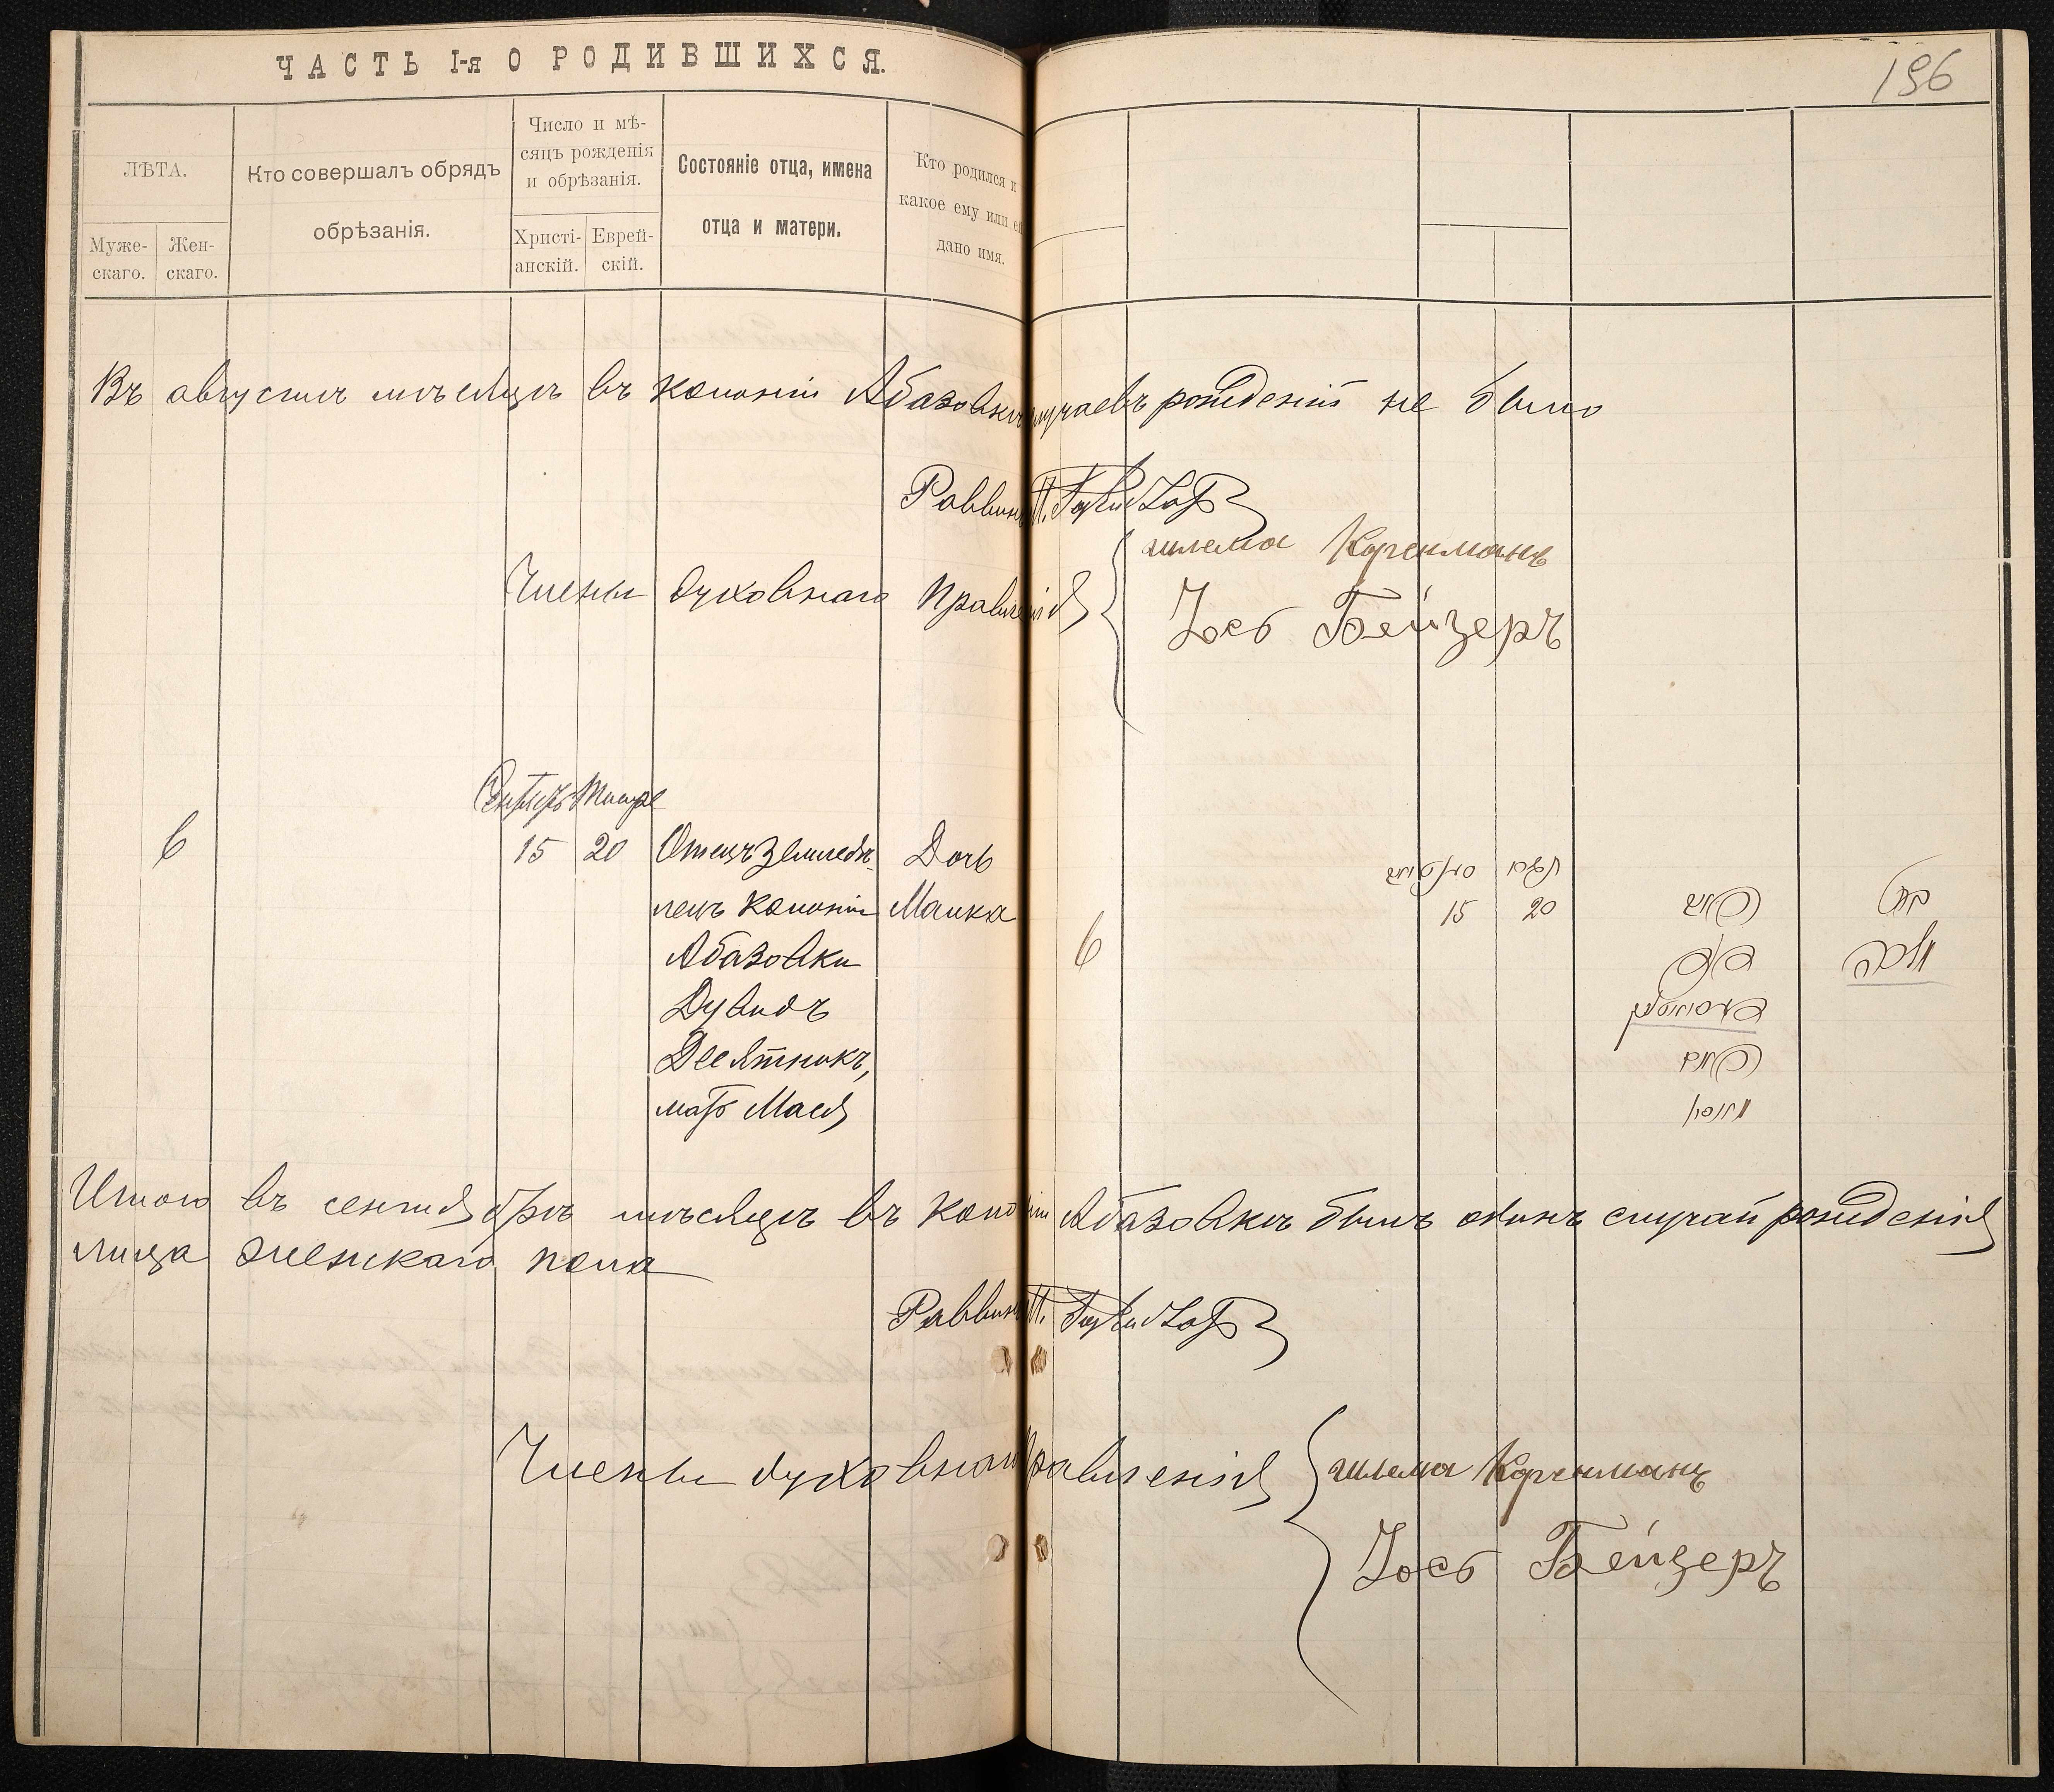 ЧАСТЬ I-я О РОДИВШИХСЯ.
196
ЛѢТА.
Муже-
скаго.
Жен-
скаго.
Кто совершалъ обрядъ
обрѣзанія.
Число и мѣ-
сяцъ рожденія
и обрѣзанія.
Христі-
анскій.
Еврей-
скій.
Состояніе отца, имена
отца и матери.
Кто родился и
какое ему или ей
дано имя.
Въ августѣ мѣсяцѣ въ колоніи Абазовкѣ случаевъ рожденій не было
Раввинъ
Члены духовнаго Правленія
шлема Корчмань
Іось Бейзеръ
6
15 20 Отецъ Земледѣ- Дочь
лецъ колоніи Малка
Абазовки
Дувидъ
Десятникъ,
мать Мася
6
15 20
בת
מלכה
Итого въ сентябрѣ мѣсяцѣ въ колоніи Абазовкѣ былъ одинъ случай рожденія
лица женскаго пола
Раввинъ
Члены духовнаго Правленія
шлема Корчмань
Іось Бейзеръ